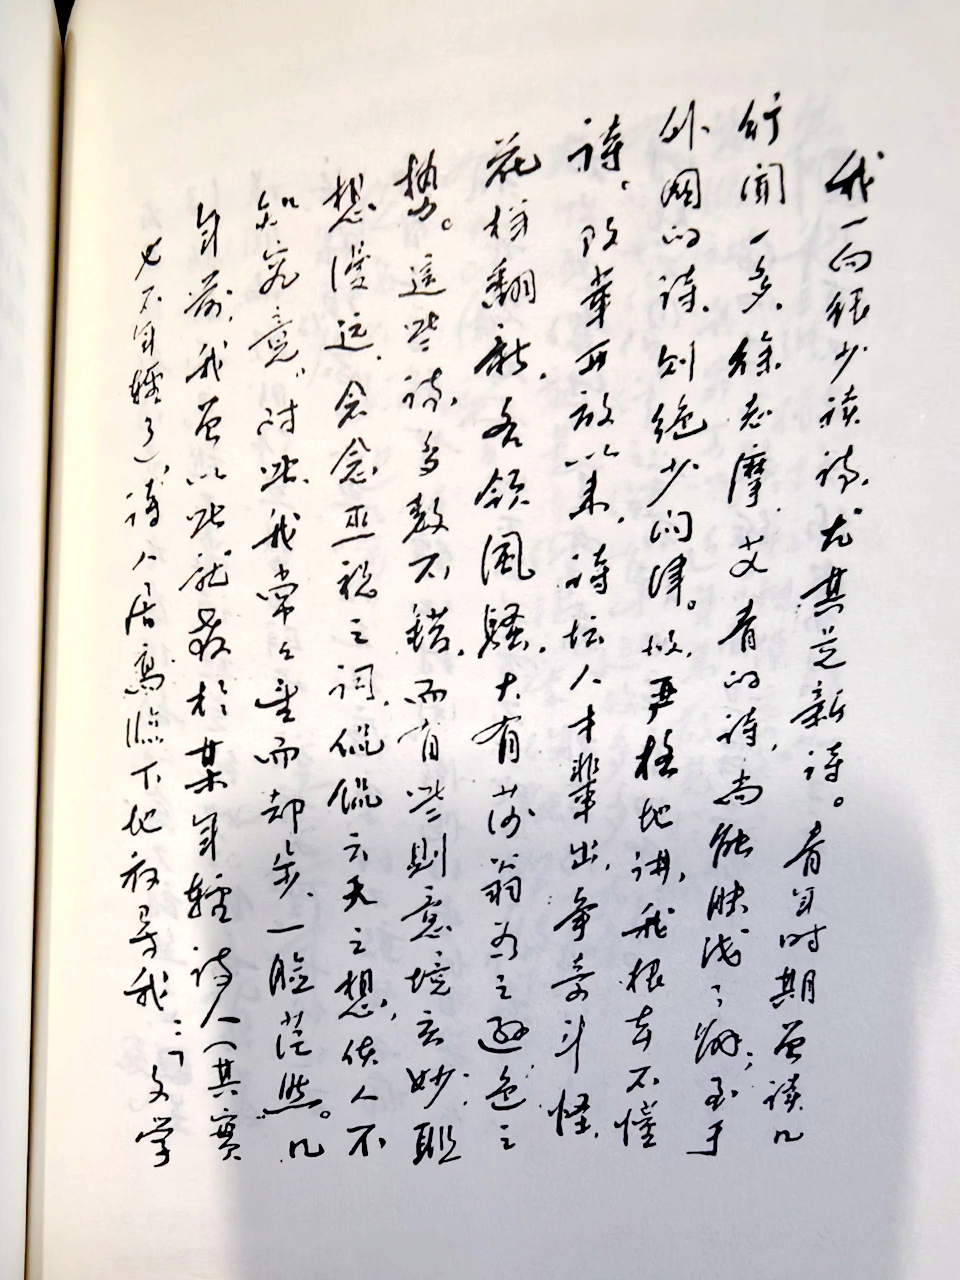 我一向很少读诗，尤其是新诗。青年时期虽读几
行闻一多、徐志摩、艾青的诗，尚能肤浅了解；至于
外国的诗，则绝少问津。故，严格地讲，我根本不懂
诗。改革开放以来，诗坛人才辈出，争奇斗怪，
花样翻新，各领风骚，大有莎翁为之逊色之
势。这些诗，多数不错，而有些则意境玄妙，联
想漫远，念念巫祝之词，侃侃云天之想，使人不
知究竟，对此，我常常望而却步，一脸茫然。几
年前，我曾以此就教于某年轻诗人（其实
也不年轻了），诗人居高临下地教导我：“文学